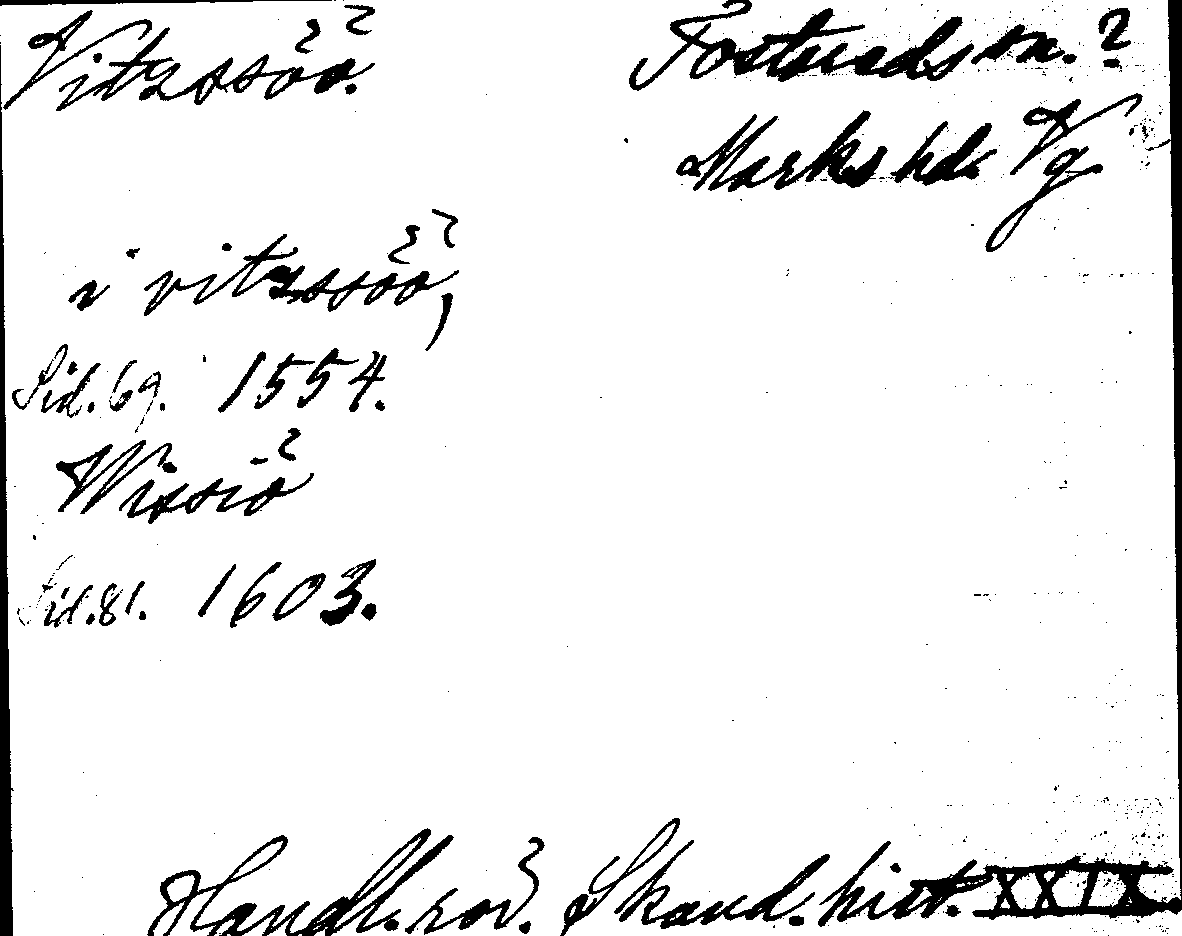 Vitzssöö. Tostaredssn.?
Marks hd. Vg.
i vitzssöö,
Sid. 69. 1554.
Wissiö
Sid. 81. 1603.
Handl. rör. Skand. hist. XXIX.